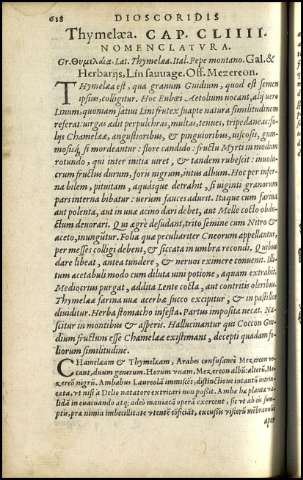 618 DIOSCORIDIS
Thymelæa. CAP. CLIIII.
NOMENCLATVRA.
Gr. Θυμελαία. Lat. Thymelæa. Ital. Pepe montano. Gal. &
Herbarijs, Lin sauuage. Off. Mezereon.
THymelæa est, qua granum Gnidium, quod est semen
ipsius, colligitur. Hoc Eubœi Aetolium nocant, alij uero
Linum. quoniam satus Lini frutex suapte natura similitudinem
referat. uirgas ædit perpulchras, multas, tenues, tripedaneas: fo-
lijs Chamelææ, angustioribus, & pinguioribus, uiscosis, gum-
mosisq́, si mordeantur: flore candido: fructu Myrti in modum
rotundo, qui inter initia uiret, & tandem rubescit: inuolu-
crum fructus durum, foris nigrum, intus album. Hoc per infer-
na bilem, pituitam, aquásque detrahit, si uiginti granorum
pars interna bibatur: uerum fauces adurit. Itaque cum farina
aut polenta, aut in uua acino dari debet, aut Melle cocto obdu-
ctum deuorari. Qui ægrè desudant, trito semine cum Nitro &
aceto, inunguntur. Folia quæ peculiariter Cneoron appellantur,
per messes colligi debent, & siccata in umbra recondi. Quibus
dare libeat, antea tundere, & neruos eximere conuenit.
tum acetabuli modo cum diluta uini potione, aquam extrahit.
Mediocriter purgat, addita Lente cocta, aut contritis oleribus.
Thymelææ farina uuæ acerbæ succo excipitur, & in pastillos
diuiditur. Herba stomacho infesta. Partus imposita necat. Na-
scitur in montibus & asperis. Hallucinantur qui Coccon Gni-
dium fructum esse Chamelææ existimant, decepti quadam fo-
liorum similitudine.
CHamelæam & Thymelæam, Arabes confusaneæ Mezereon uo-
cant, duum generum. Horum unum, Mezereon albũ: alterũ, Me-
zereõ nigrũ. Ambabus Laureola immiscet, distinctione incauta
ta, et nisi à Delio notatore extricari non possit. Ambæ plantæ ua-
lidã in euacuando atq; adeò maniacã operã exercent, sic ut ab ijs sum-
ptis, præ nimia imbecillitate uentrẽ cusus
aper